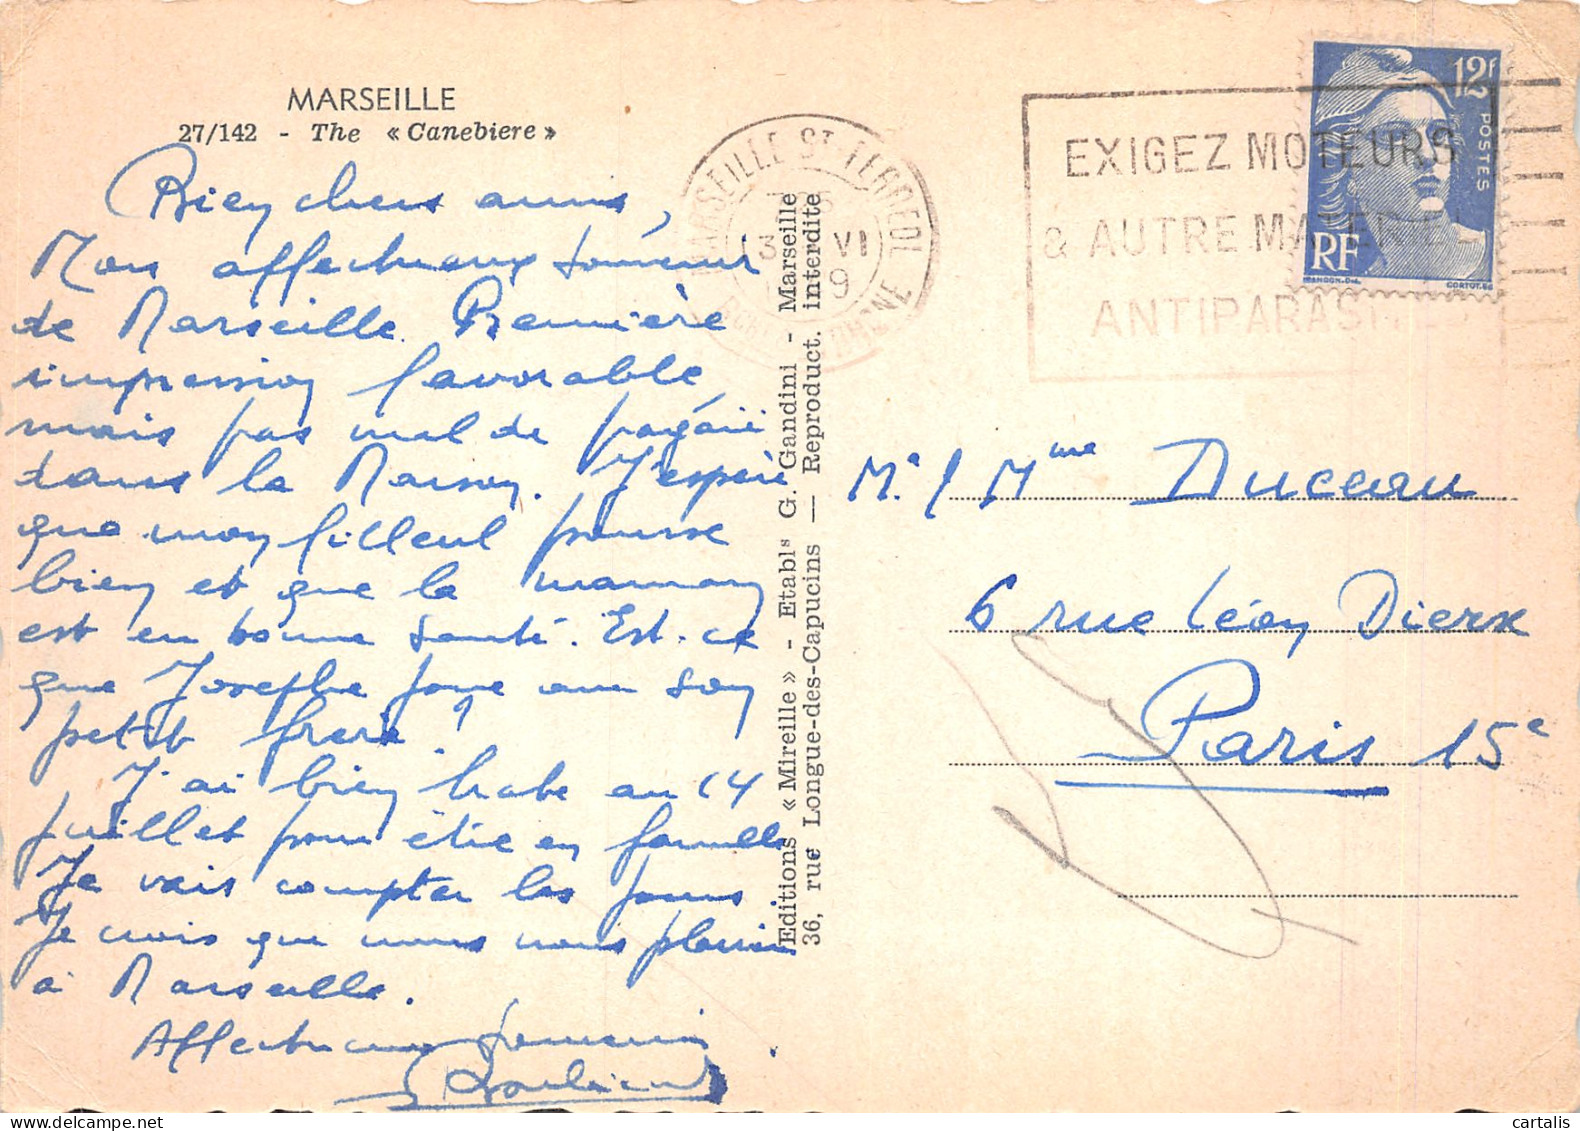 MARSEILLE
27/142 - The « Canebiere »
Bien chers amis,
Mon affectueux souvenir
de Marseille. Première
impression favorable
mais pas mal de pagaïe
dans la Maison. J'espère
que mon filleul pousse
bien et que la maman
est en bonne santé. Est-ce
que Josephe joue avec son
petit frère?
J'ai bien hate au 14
juillet pour être en famille
Je vais compter les jours.
Je crois que nous nous plairions
à Marseille.
Affectueux souvenir
Editions « Mireille » - Etabls G. Gandini - Marseille
36, rue Longue-des-Capucins — Reproduct. interdite
MARSEILLE ST FERREOL
VI
RHONE
EXIGEZ MOTEURS
& AUTRE MATERIEL
ANTIPARASITES
12F
POSTES
RF
GANDON.DEL.
CORTOT.SC
Mr / Mme Duceau
6 rue Léon Dierx
Paris 15e
cartalis